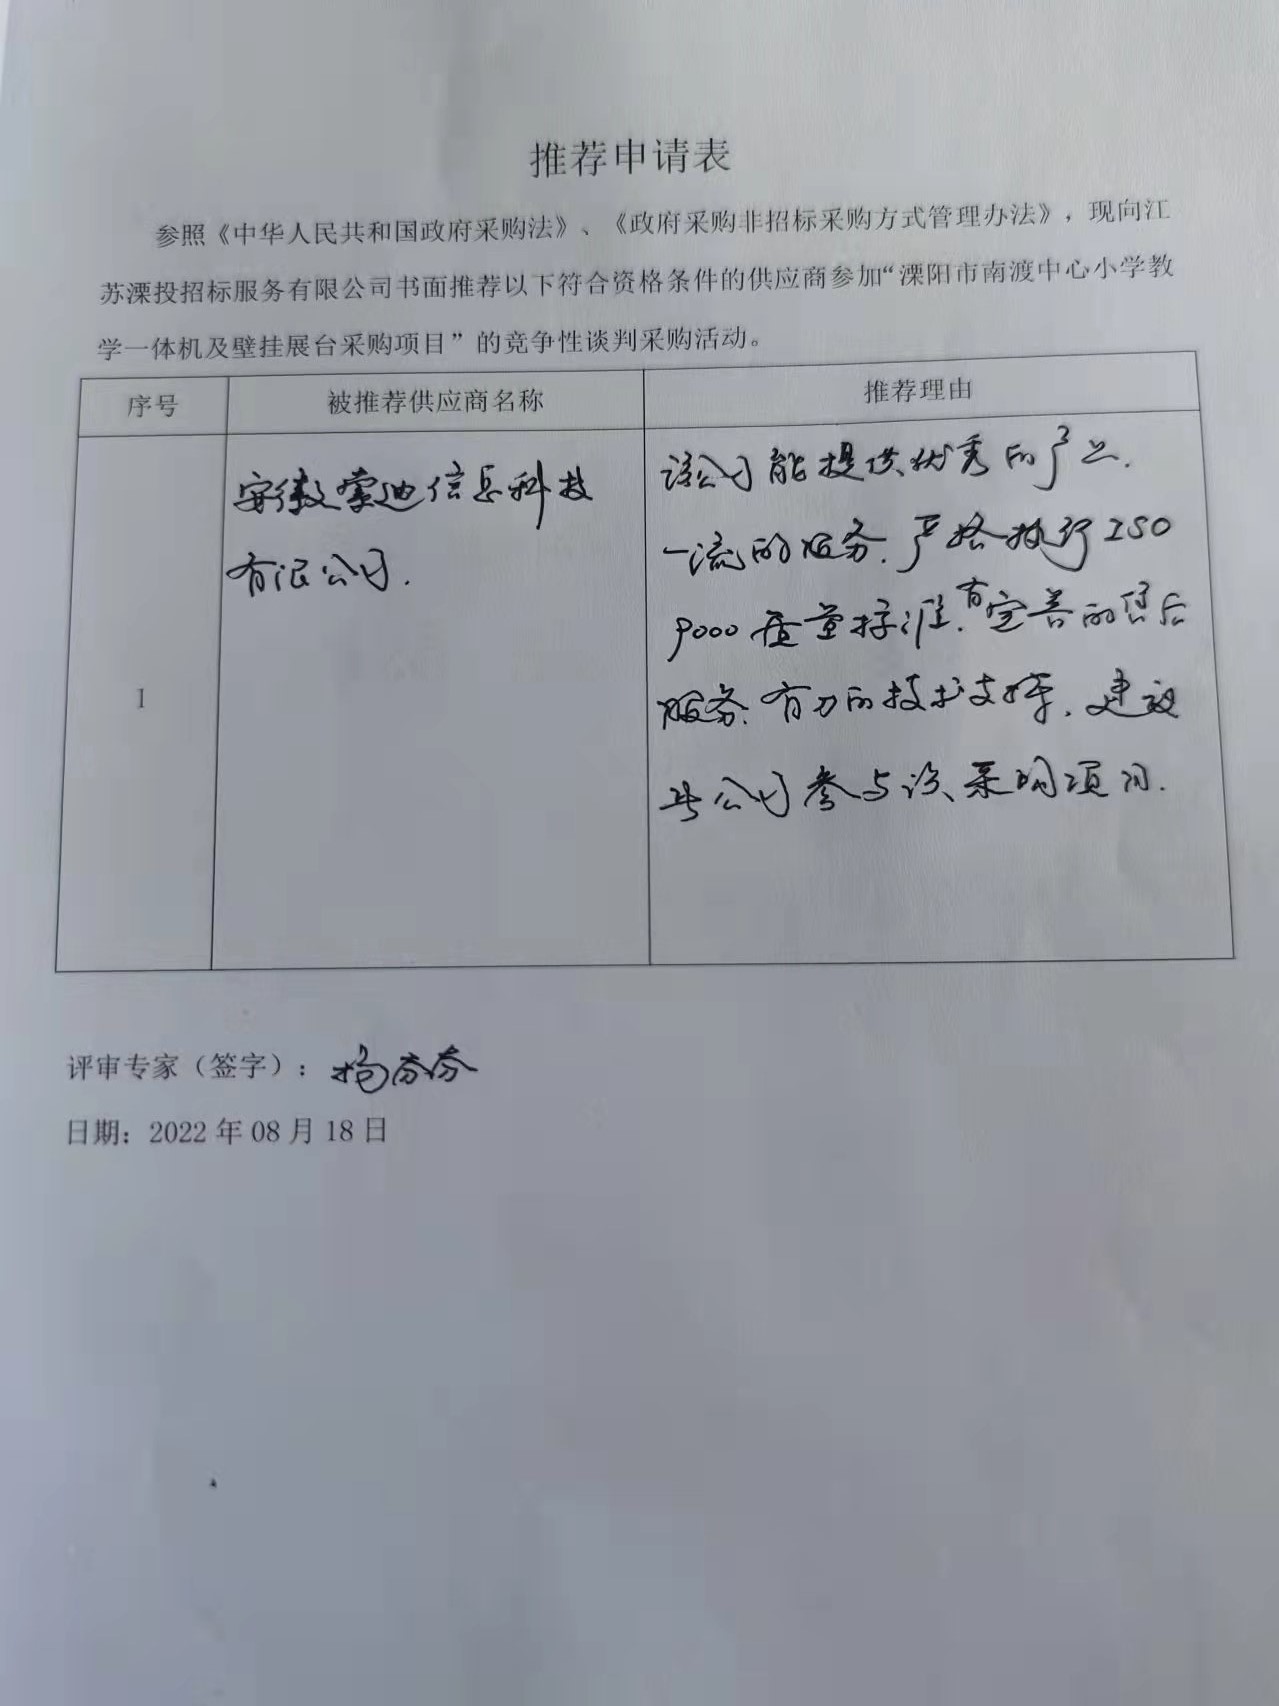 推荐申请表
参照《中华人民共和国政府采购法》、《政府采购非招标采购方式管理办法》，现向江
苏溧投招标服务有限公司书面推荐以下符合资格条件的供应商参加“溧阳市南渡中心小学教
学一体机及壁挂展台采购项目”的竞争性谈判采购活动。
序号
被推荐供应商名称
推荐理由
1
安徽索迪信息科技
有限公司.
该公司能提供优秀的产品.
一流的服务.严格执行ISO
9000质量标准.有完善的售后
服务.有力的技术支撑.建议
此公司参与该采购项目.
评审专家（签字）：杨芬芬
日期：2022年08月18日